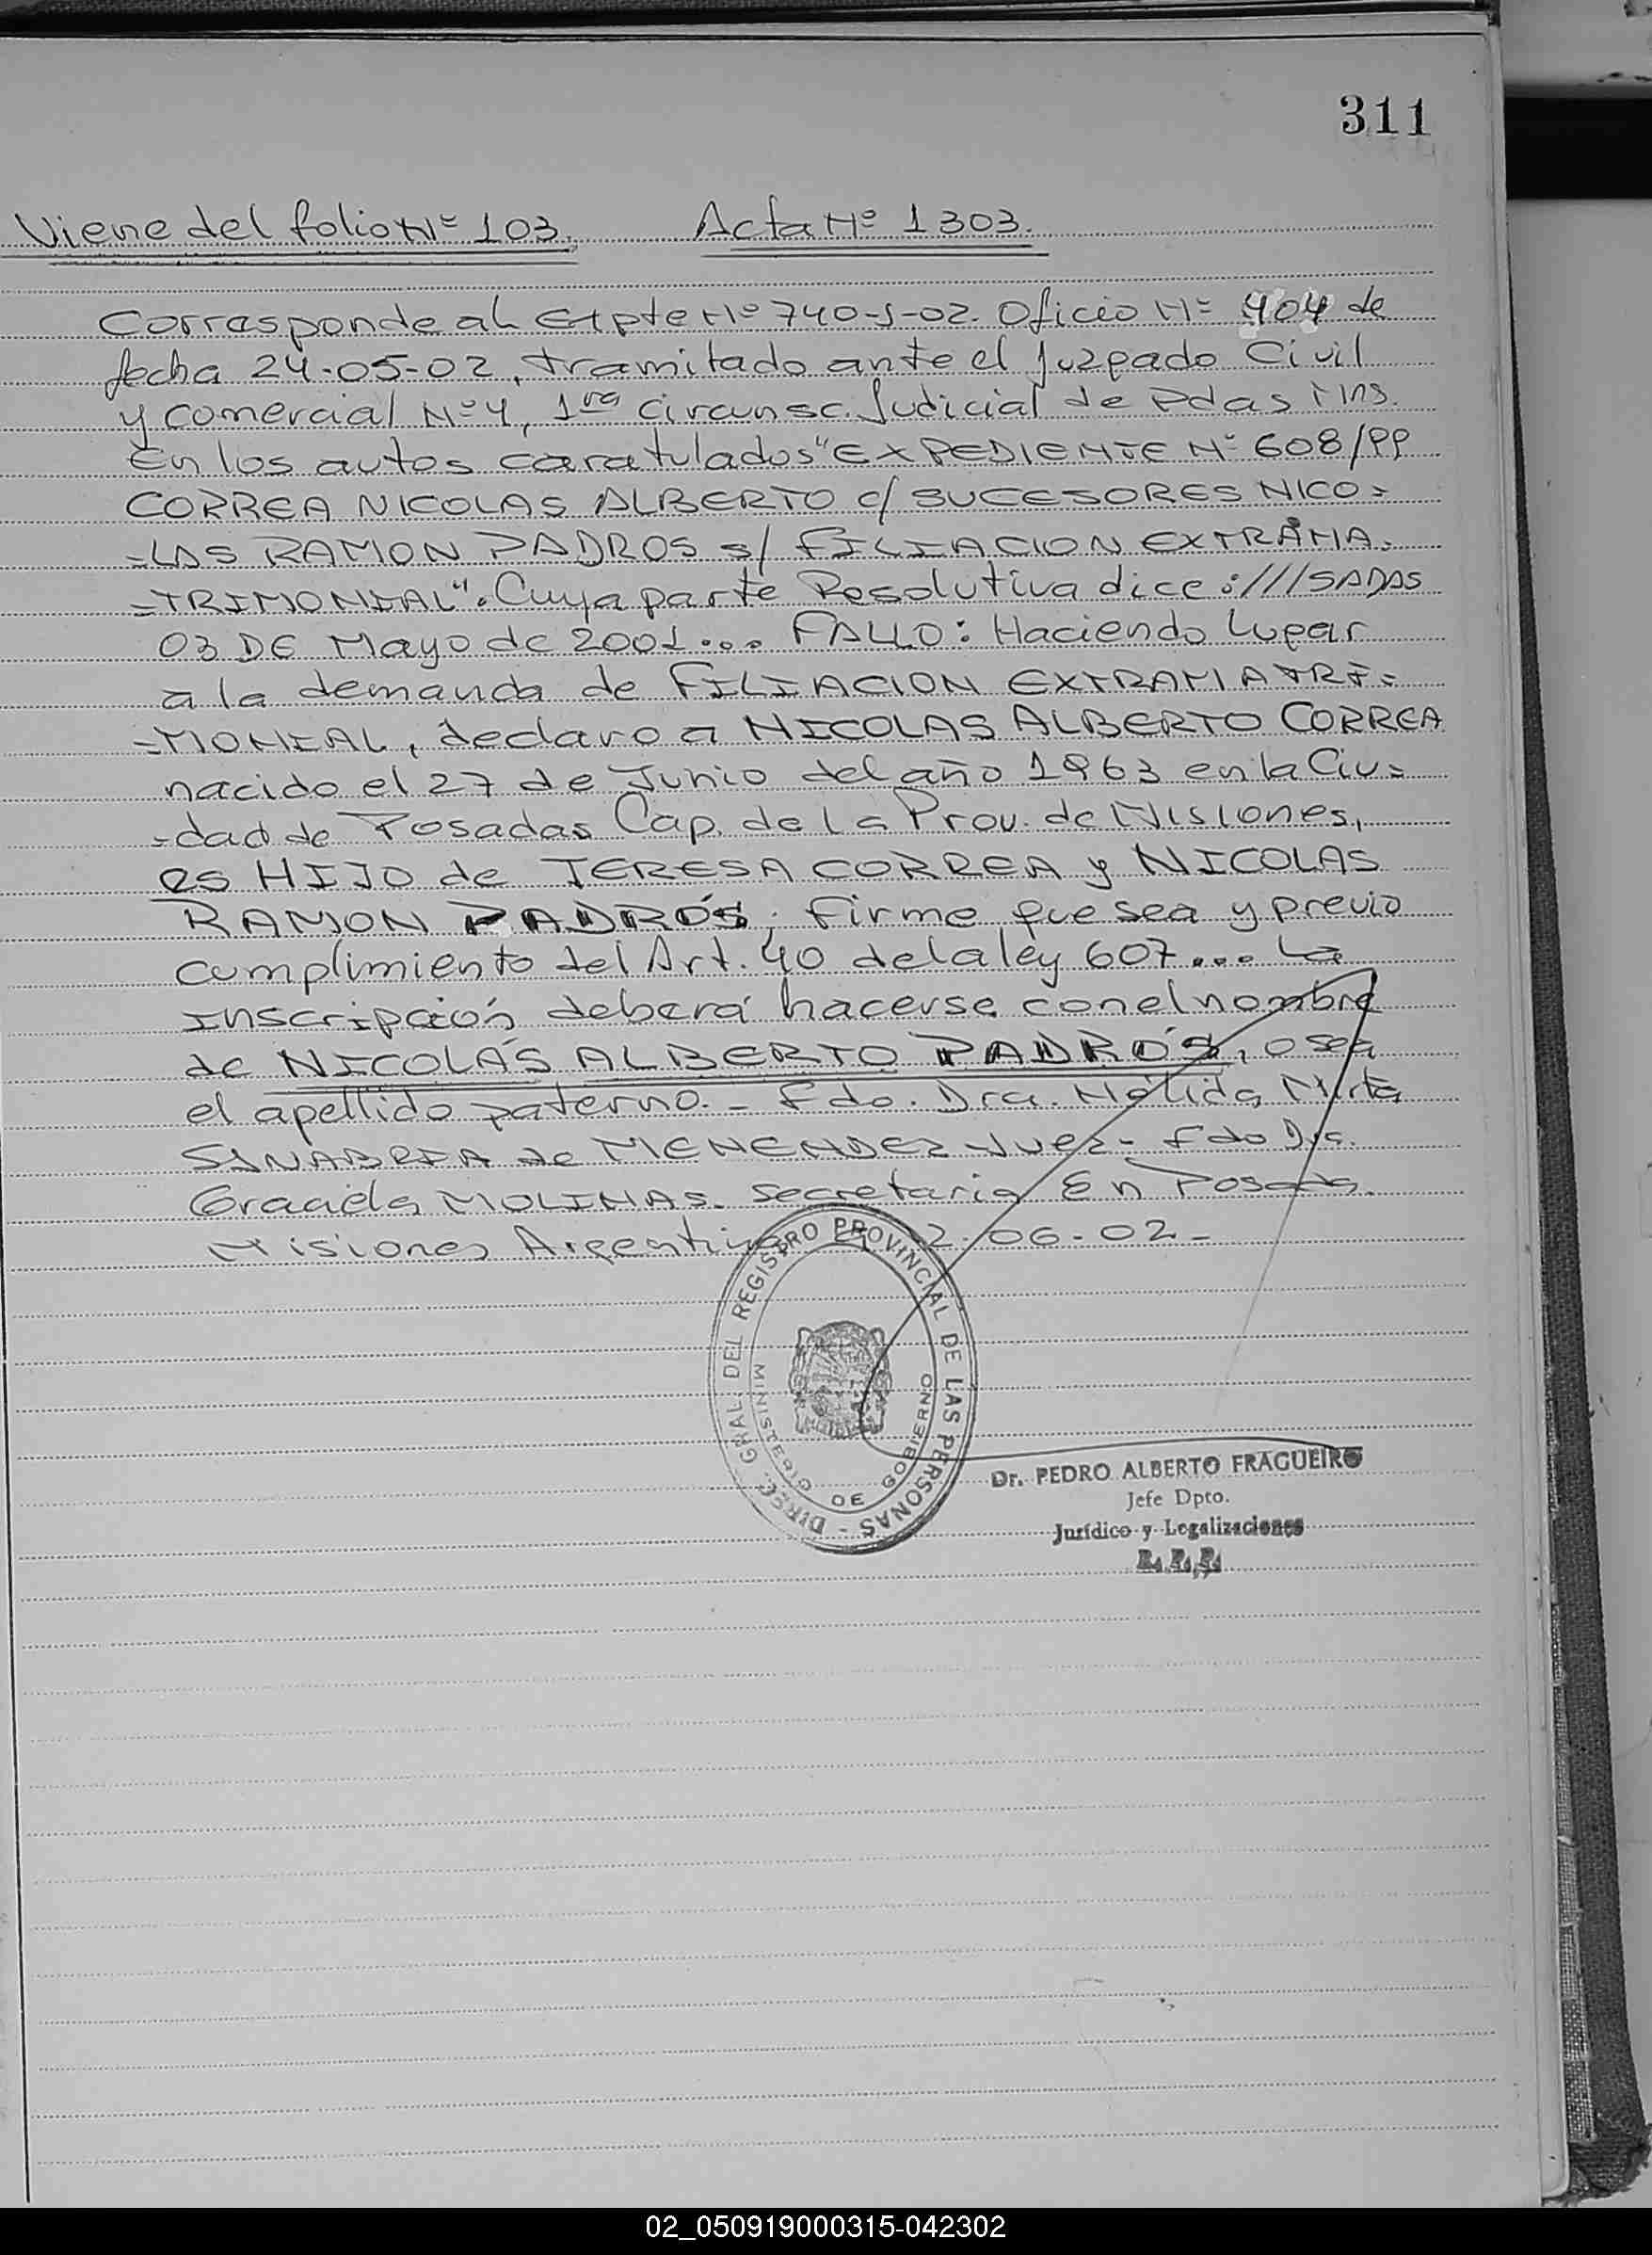 311
Viene del folio Nº 103. Acta Nº 1303.
Corresponde al Expte Nº 740-S-02. Oficio Nº 404 de
fecha 24-05-02, tramitado ante el Juzgado Civil
y Comercial Nº 4, 1ra Circunsc. Judicial de Pdas Mns.
En los autos caratulados "EXPEDIENTE Nº 608/99
CORREA NICOLAS ALBERTO c/ SUCESORES NICO=
=LAS RAMON PADROS s/ FILIACION EXTRAMA=
=TRIMONIAL". Cuya parte Resolutiva dice: ///SADAS
03 DE Mayo de 2001... FALLO: Haciendo lugar
a la demanda de FILIACION EXTRAMATRI=
=MONIAL, declaro a NICOLAS ALBERTO CORREA
nacido el 27 de Junio del año 1963 en la Ciu=
=dad de Posadas Cap. de la Prov. de Misiones,
es HIJO de TERESA CORREA y NICOLAS
RAMON PADRÓS; firme que sea y previo
cumplimiento del Art. 40 de la ley 607... La
Inscripción deberá hacerse con el nombre
de NICOLÁS ALBERTO PADRÓS, o sea
el apellido paterno.- Fdo. Dra. Nélida Mirta
SINABREA de MENENDEZ Juez- Fdo Dra.
Graciela MOLINAS. Secretaria En Posadas.
Misiones Argentina 2-06-02-
DIREC. GRAL. DEL REGISTRO PROVINCIAL DE LAS PERSONAS -
MINISTERIO DE GOBIERNO
Dr. PEDRO ALBERTO FRAGUEIRO
Jefe Dpto.
Jurídico y Legalizaciones
R. P. P.
02_050919000315-042302